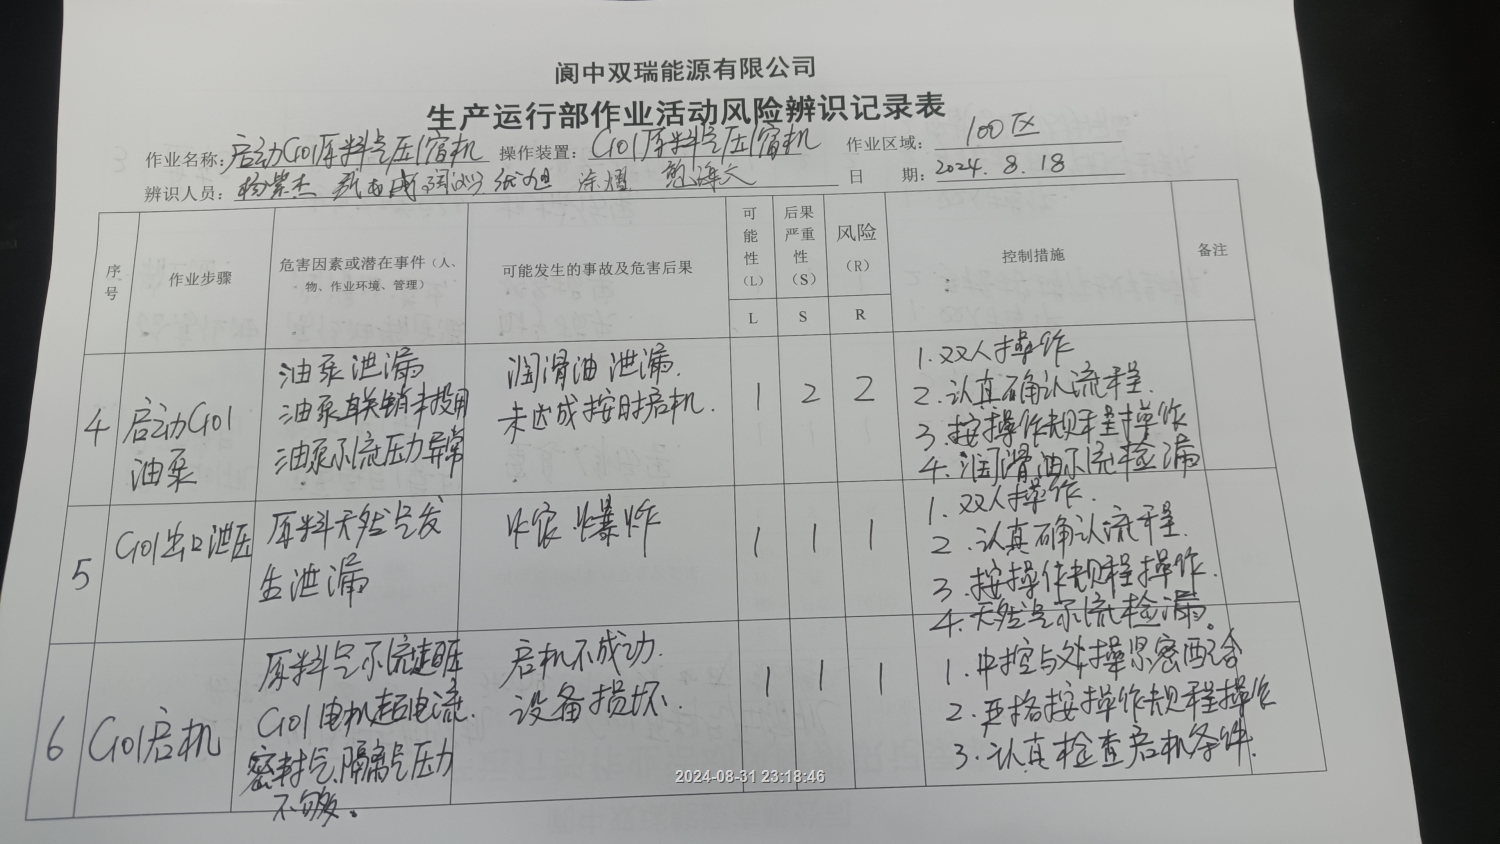 阆中双瑞能源有限公司
生产运行部作业活动风险辨识记录表
作业名称: 启动C101原料气压缩机 操作装置: C101原料气压缩机 作业区域: 100区
辨识人员: 杨紫杰 涂熠 日 期: 2024.8.18
序号 作业步骤 危害因素或潜在事件(人、物、作业环境、管理) 可能发生的事故及危害后果 可能性(L) 后果严重性(S) 风险(R) 控制措施 备注
L S R
4 启动C101油泵
油泵泄漏
油泵联锁未投用
油泵系统压力异常
润滑油泄漏.
未达成按时启机.
1 2 2
1.双人操作
2.认真确认流程.
3.按操作规程操作
4.润滑油系统检漏
5 C101出口泄压
原料天然气发
生泄漏
火灾.爆炸
1 1 1
1.双人操作.
2.认真确认流程.
3.按操作规程操作.
4.天然气系统检漏。
6 C101启机
原料气系统超压
C101电机超电流.
密封气、隔离气压力
不够。
启机不成功.
设备损坏.
1 1 1
1.中控与外操紧密配合
2.严格按操作规程操作
3.认真检查启机条件.
2024-08-31 23:18:46